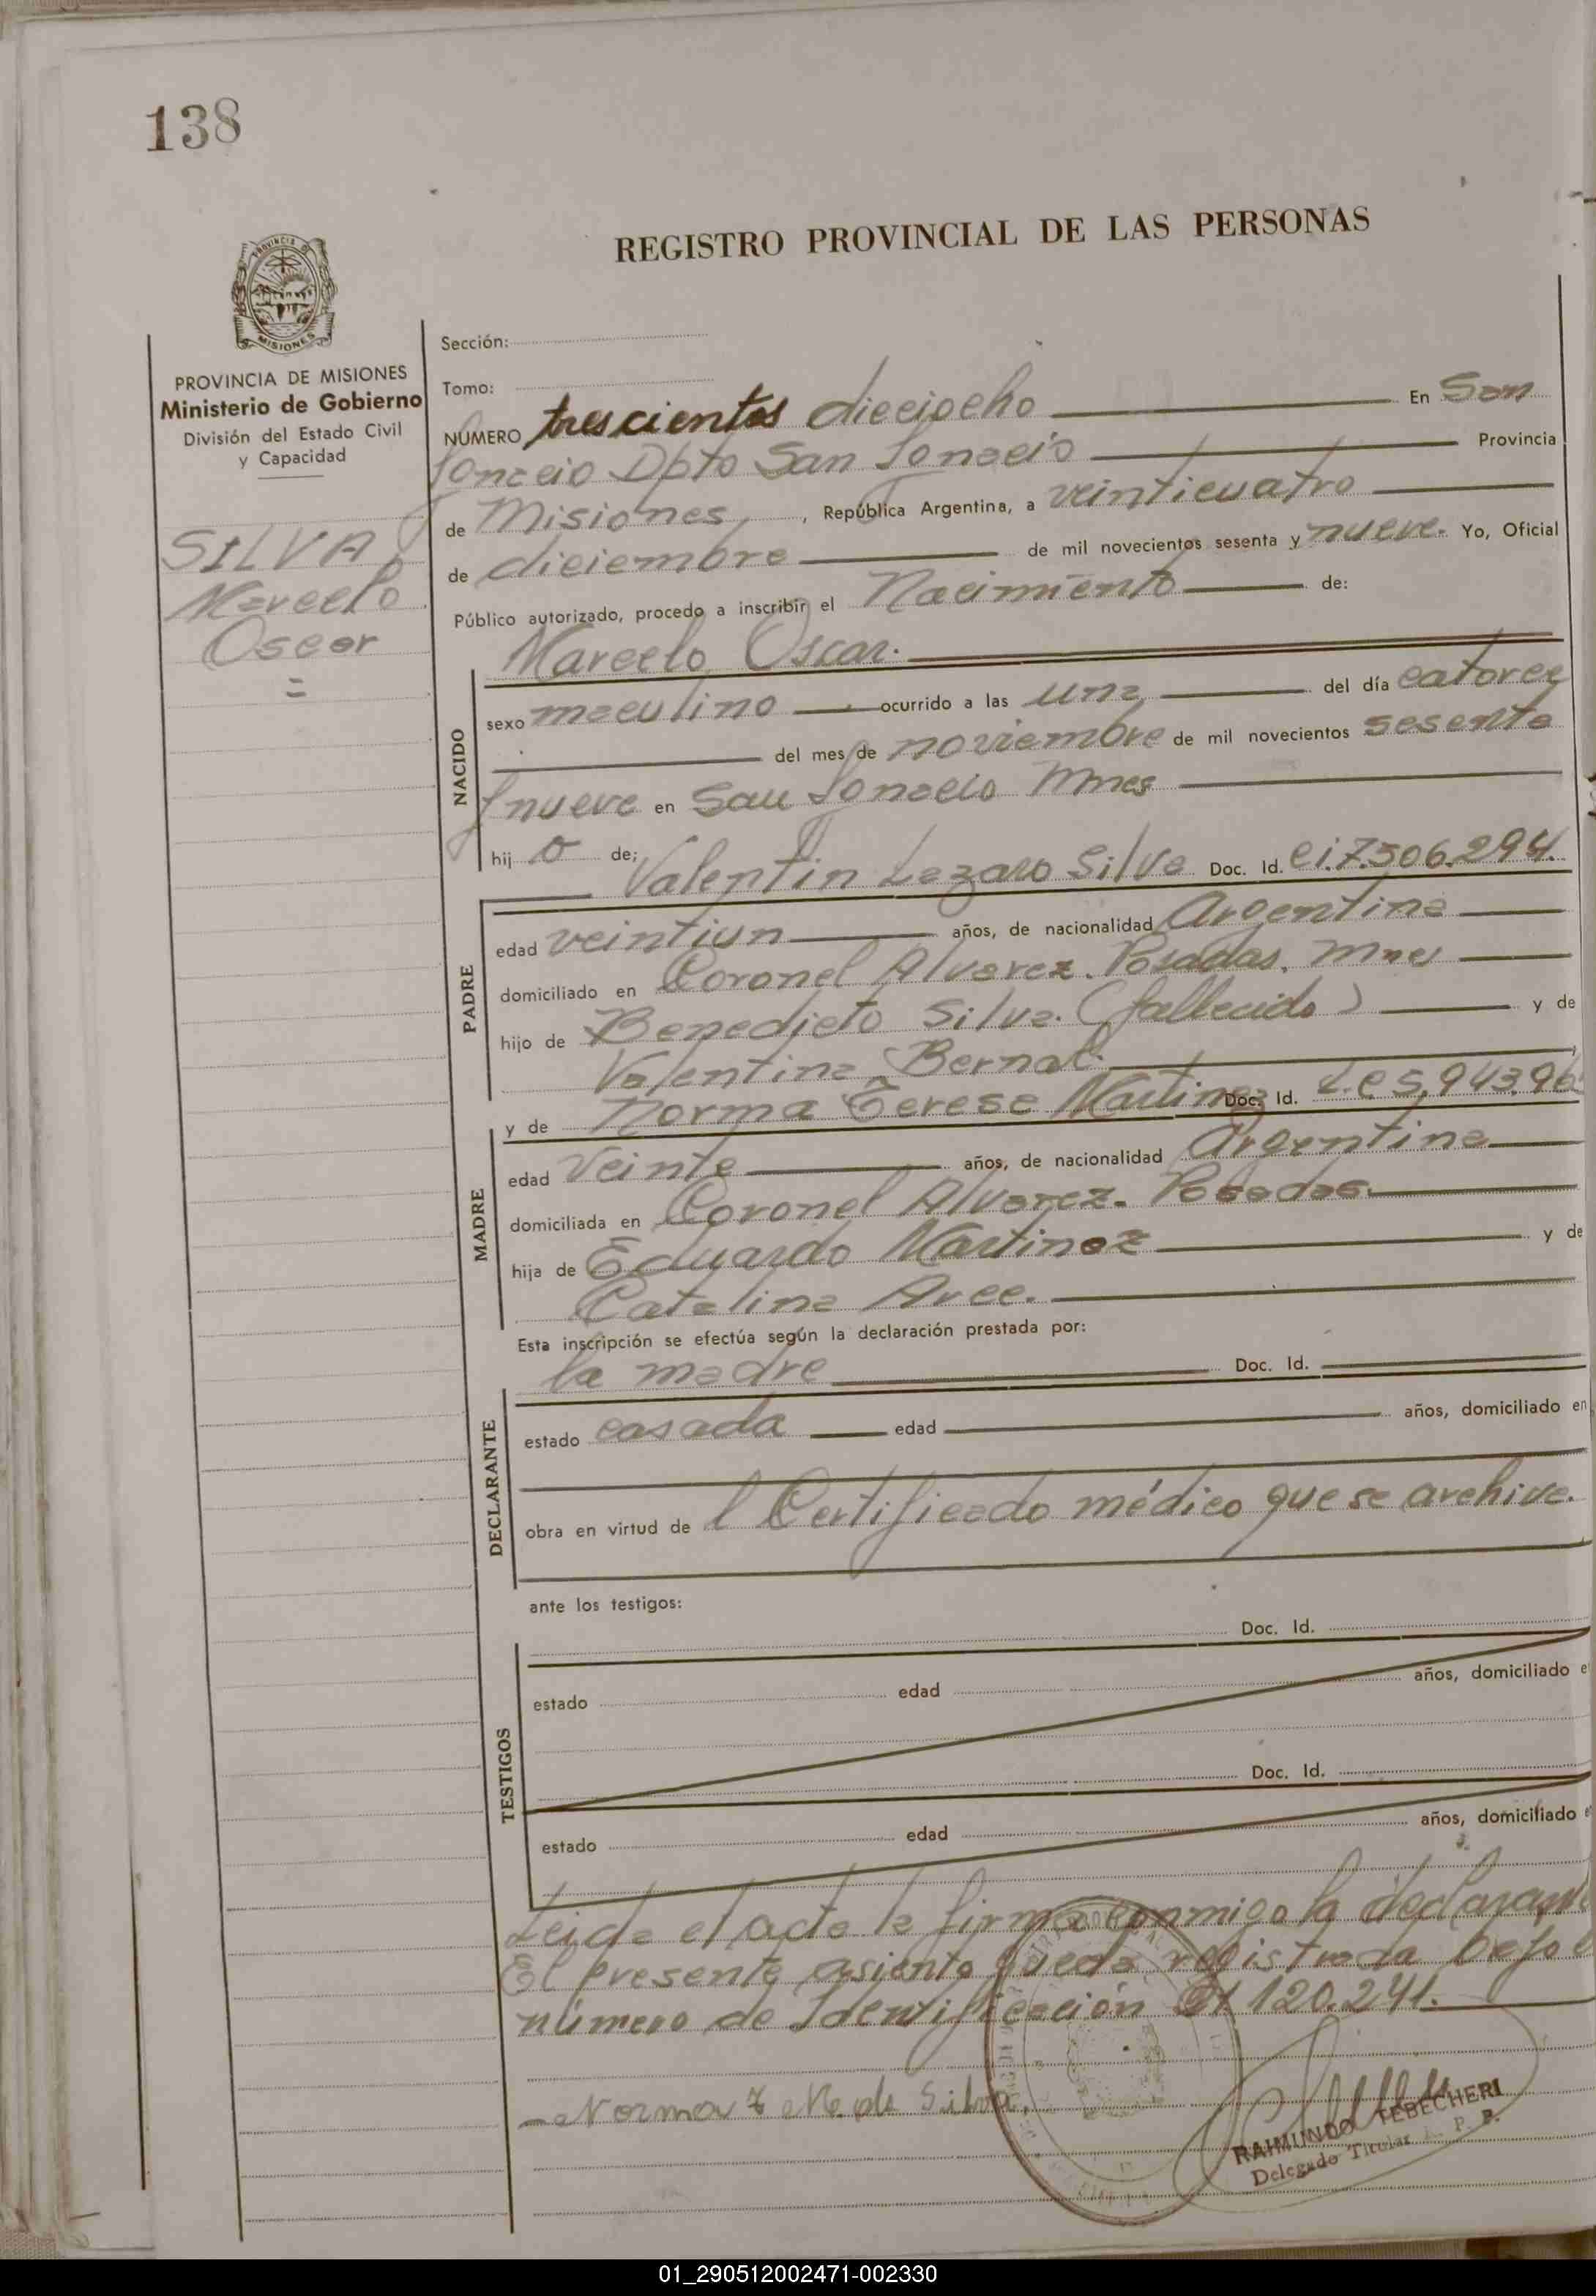 138
REGISTRO PROVINCIAL DE LAS PERSONAS
PROVINCIA DE MISIONES
MISIONES
PROVINCIA DE MISIONES
Ministerio de Gobierno
División del Estado Civil
y Capacidad
SILVA
Marcelo
Oscar
=
Sección:
Tomo:
NÚMERO trescientos dieciocho En San
Ignacio Dpto San Ignacio Provincia
de Misiones, República Argentina, a veinticuatro
de diciembre de mil novecientos sesenta y nueve. Yo, Oficial
Público autorizado, procedo a inscribir el Nacimiento de:
Marcelo Oscar.
NACIDO
sexo masculino ocurrido a las una del día catorce
del mes de noviembre de mil novecientos sesenta
y nueve en San Ignacio Mnes
hij o de; Valentin Lazaro Silva Doc. Id. C.i. 7.506.294.
PADRE
edad veintiun años, de nacionalidad Argentina
domiciliado en Coronel Alvarez. Posadas. Mnes
hijo de Benedicto Silva. (fallecido) y de
Valentina Bernal.
y de Norma Teresa Martinez Doc. Id. L.C 5,943,96
MADRE
edad Veinte años, de nacionalidad Argentina
domiciliada en Coronel Alvarez. Posadas.
hija de Eduardo Martinez y de
Catalina Arce.
Esta inscripción se efectúa según la declaración prestada por:
la madre Doc. Id.
DECLARANTE
estado casada edad años, domiciliado en
obra en virtud de l Certificado médico que se archiva.
ante los testigos:
TESTIGOS
Doc. Id.
estado edad años, domiciliado e
Doc. Id.
estado edad años, domiciliado e
Leida el acta la firma conmigo la declarant
El presente asiento queda registrada bajo e
número de Identificación 21 120.241.
Norma T M. de Silva,
RAIMUNDO TEBECHERI
Delegado Titular R. P. P.
01_290512002471-002330